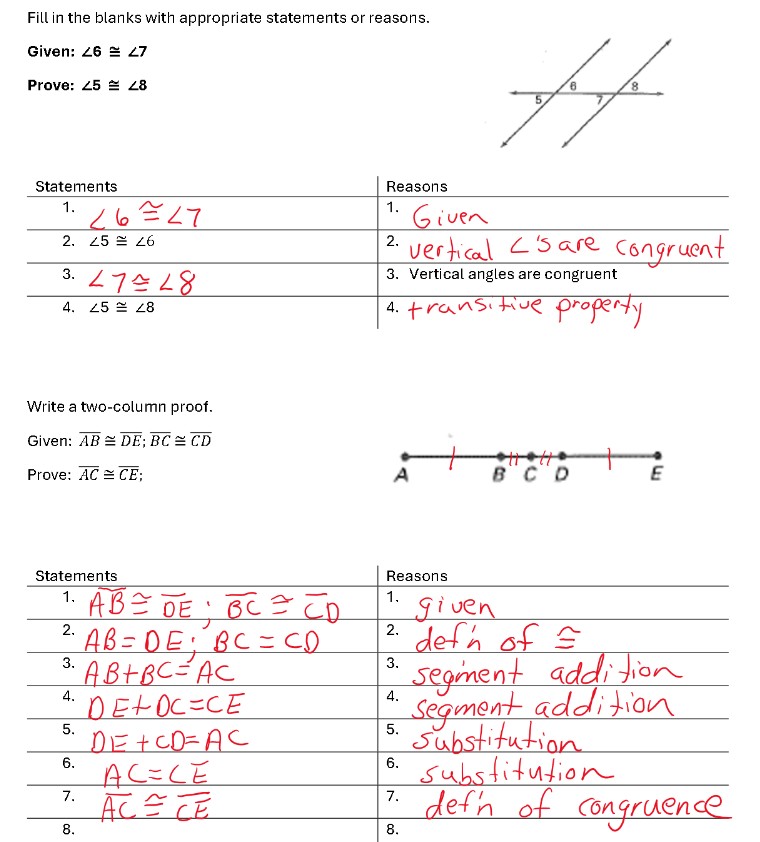 Fill in the blanks with appropriate statements or reasons.
Given: ∠6 ≅ ∠7
Prove: ∠5 ≅ ∠8
6 8
5 7
Statements Reasons
1. ∠6 ≅ ∠7 1. Given
2. ∠5 ≅ ∠6 2. vertical ∠'s are congruent
3. ∠7 ≅ ∠8 3. Vertical angles are congruent
4. ∠5 ≅ ∠8 4. transitive property
Write a two-column proof.
Given: A̅B̅ ≅ D̅E̅; B̅C̅ ≅ C̅D̅
Prove: A̅C̅ ≅ C̅E̅;
A B C D E
Statements Reasons
1. A̅B̅ ≅ D̅E̅; B̅C̅ ≅ C̅D̅ 1. given
2. AB = DE; BC = CD 2. def'n of ≅
3. AB+BC=AC 3. segment addition
4. DE+DC=CE 4. segment addition
5. DE+CD=AC 5. substitution
6. AC=CE 6. substitution
7. A̅C̅ ≅ C̅E̅ 7. def'n of congruence
8. 8.